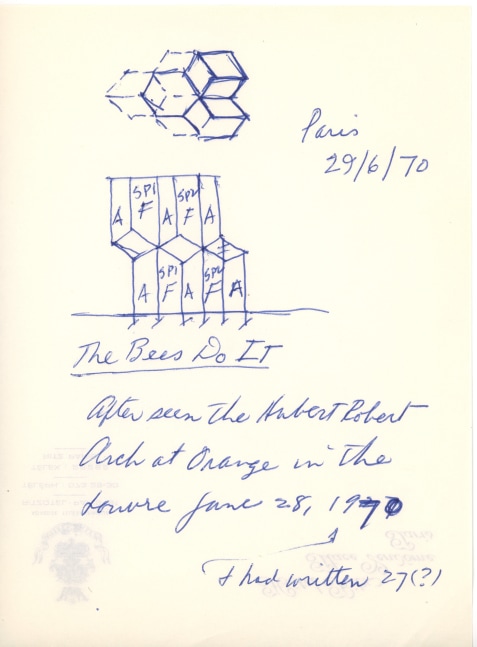 Paris
29/6/70
A SP1 F A SP2 F A
A SP1 F A SP2 F A
The Bees Do IT
After seen the Hubert Robert
Arch at Orange in the
Louvre June 28, 1970
I had written 27(?)